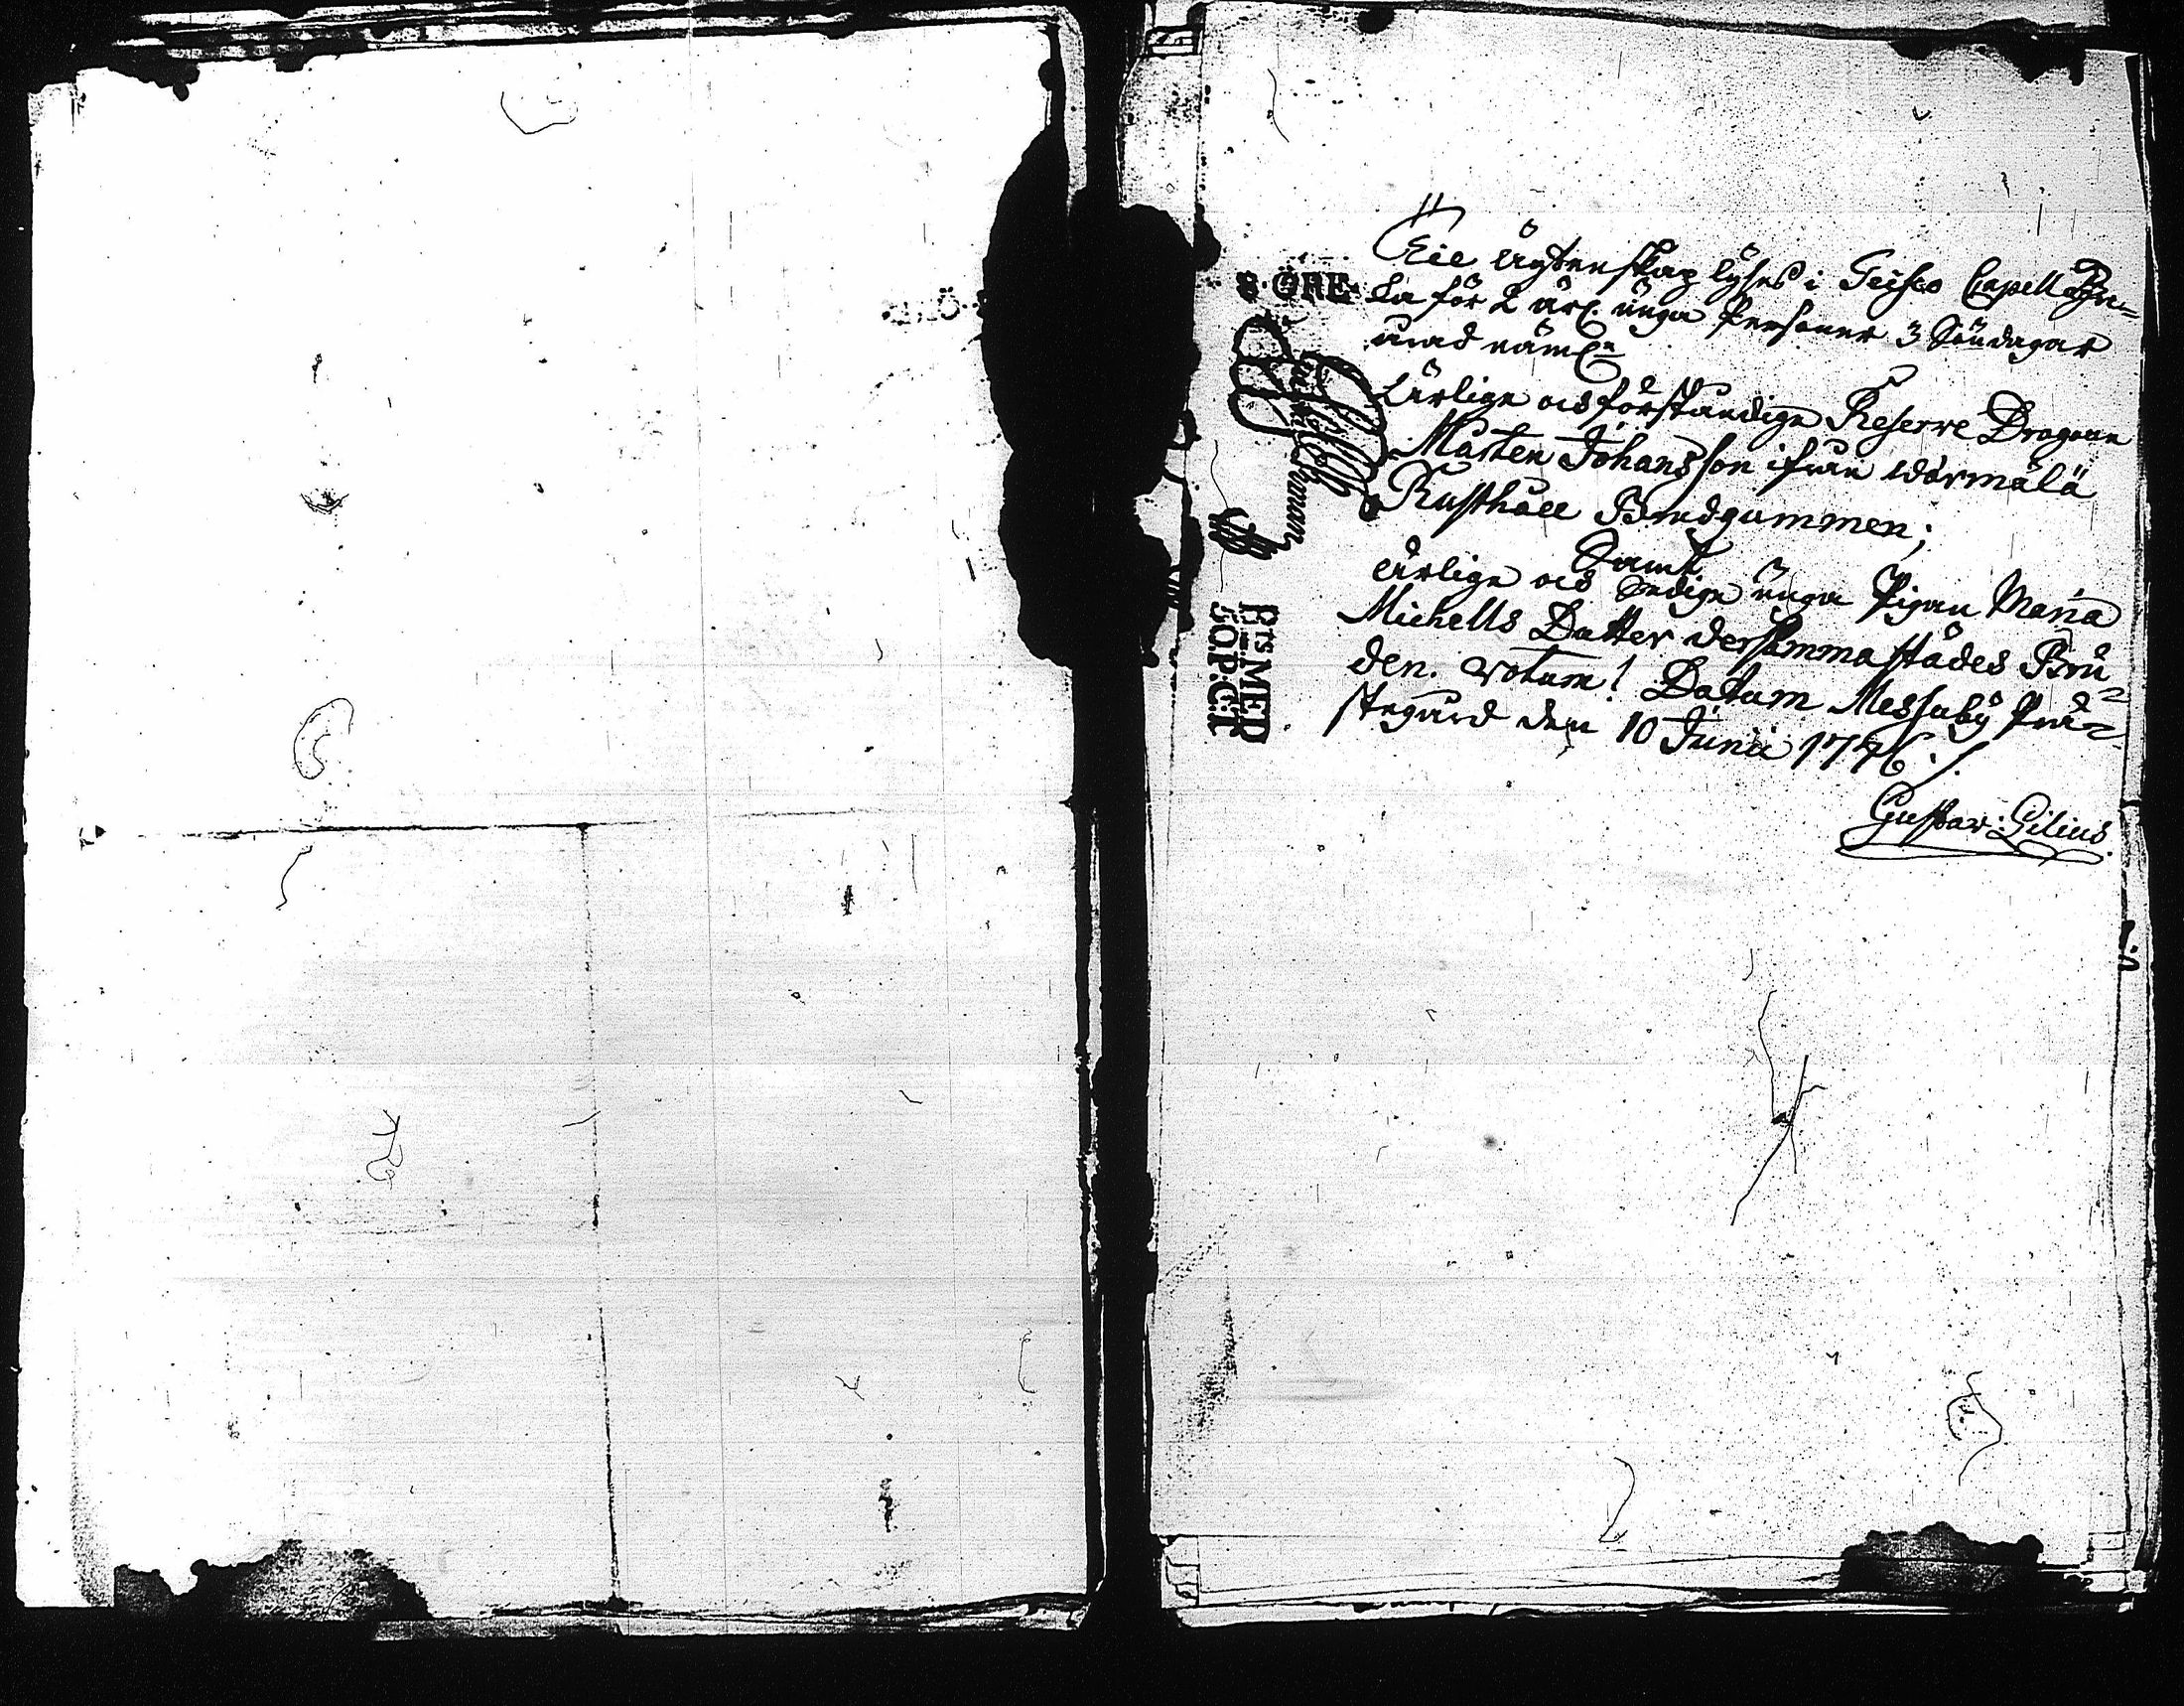 8·ÖRE·
Till ägtenskap lyses i Teisco Capell Kyr=
kia för 2 ärl. unga Personer 3 Söndagar
å rad näml:n
Ärlige och förståndige Reserve Dragoun
Mårten Johansson ifrån
Rusthåll Brudgummen;
Samt
ärlige och Sediga unga Pigan Maria
Michells Datter dersammastädes Bru=
den. votum! Datum Messuby Prä=
stegård den 10 Junii 1776 ./.
Gustav: Gilius.
P:ts MED
5Q.P:C:T